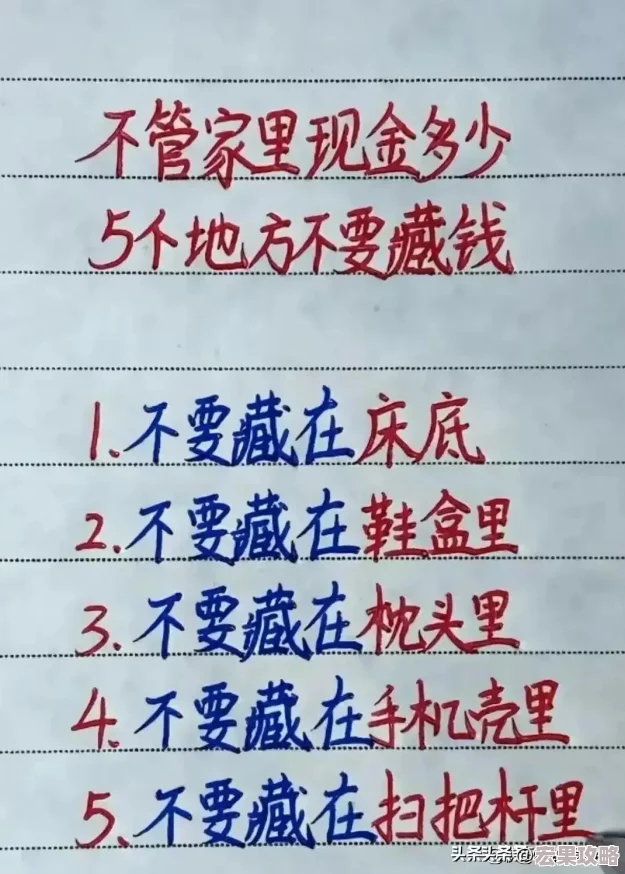 不管家里现金多少
5个地方不要藏钱
1.不要藏在床底
2.不要藏在鞋盒里
3.不要藏在枕头里
4.不要藏在手机壳里
5.不要藏在扫把杆里
头条头条@宏果攻略